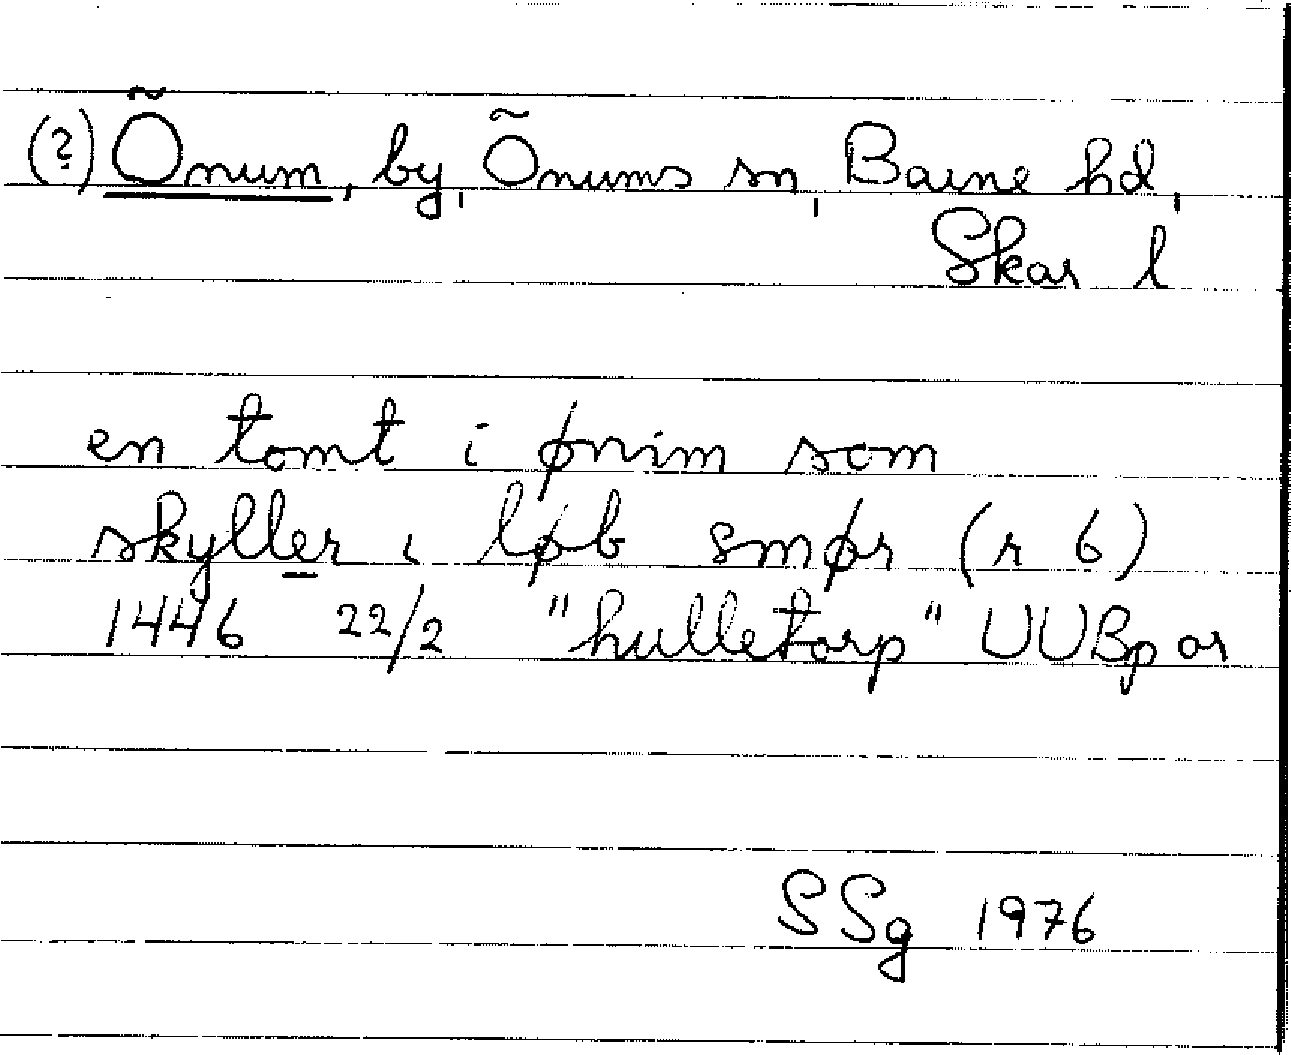 (?) Õnum, by, Õnums sn, Barne hd,
Skar l
en tomt i ønim som
skyller i løb smør (r 6)
1446 22/2 "hulletorp" UUBp or
SSg 1976